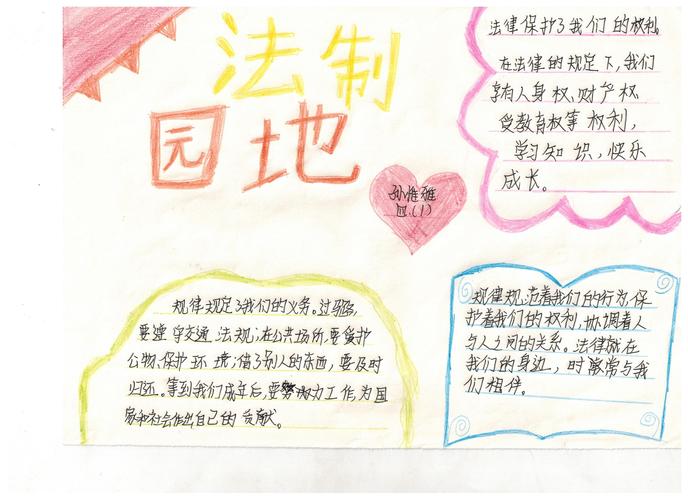 法制
园地
法律保护了我们的权利
在法律的规定下，我们
享有人身权、财产权
受教育权等权利，
学习知识，快乐
成长。
孙雅
四(1)
规律规定了我们的义务。过马路，
要遵守交通法规；在公共场所，要爱护
公物、保护环境；借了别人的东西，要及时
归还。等到我们成年后，要努力工作，为国
家和社会作出自己的贡献。
规律规范着我们的行为，保
护着我们的权利，协调着人
与人之间的关系。法律就在
我们的身边，时常与我
们相伴。